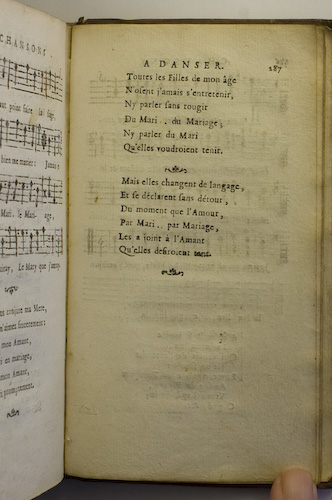 CHANSONS
aut point faire
bien me marier : Jamais
Mari, le Mari- age,
Le Mary que j'auray
ma Mere,
mon Amant,
en mariage,
mon Amant,
A DANSER. 287
Toutes les Filles de mon âge
N'osent j'amais s'entretenir,
Ny parler sans rougir
Du Mari . . du Mariage ;
Ny parler du Mari
Qu'elles voudroient tenir.
Mais elles changent de langage,
Et se déclarent sans détour,
Du moment que l'Amour,
Par Mari . . par Mariage,
Les a joint à l'Amant
Qu'elles desiroient tant.